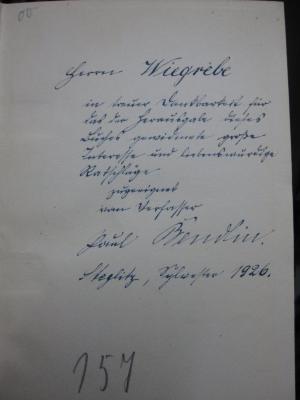 Herrn Wiegrebe
in treuer Dankbarkeit für
das der Herausgabe dieses
Buches gewidmete große
Interesse und liebenswürdige
Ratschläge
zugeeignet
vom Verfasser
Paul Bendin.
Steglitz, Sylvester 1926.
157